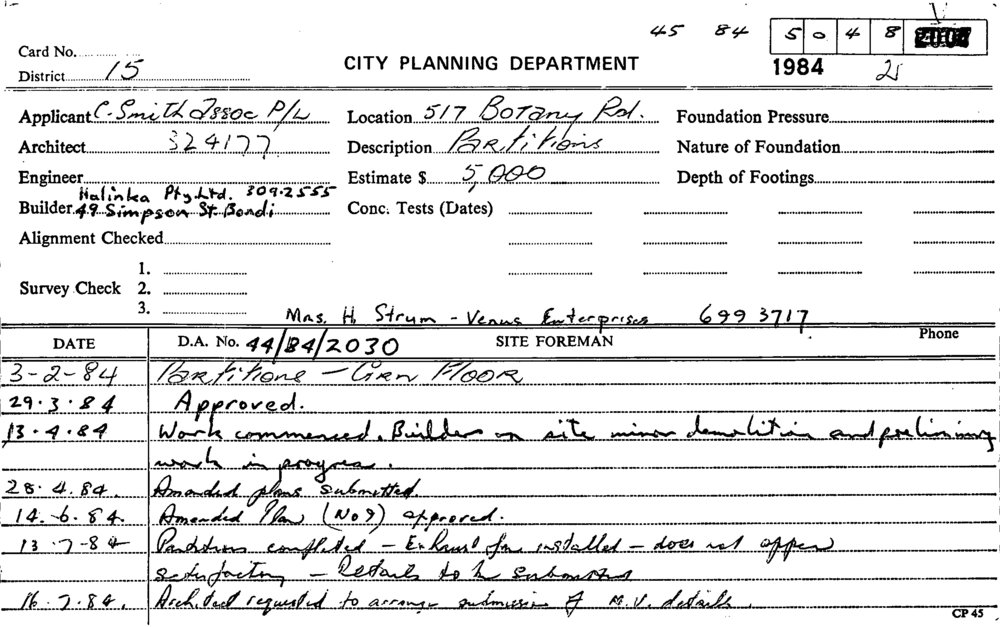 45 84 5048
Card No.
District 15
CITY PLANNING DEPARTMENT
1984 2
Applicant C. Smith Assoc P/L Location 517 Botany Rd. Foundation Pressure
Architect 324177 Description Partitions Nature of Foundation
Engineer Estimate $ 5,000 Depth of Footings
Halinka Pty. Ltd. 309.2555
Builder 49 Simpson St. Bondi Conc. Tests (Dates)
Alignment Checked
1.
Survey Check 2.
3.
Mrs. H. Strum - Venus Enterprises 699 3717
DATE D.A. No. 44/84/2030 SITE FOREMAN Phone
3-2-84 Partitions - Grn Floor
29.3.84 Approved.
13.4.84 Work commenced. Builder on site minor demolition and preliminary
work in progress.
28.4.84. Amended plans submitted.
14.6.84. Amended Plan (No 9) approved.
13-7-84 Partitions completed - Exhaust fan installed - does not appear
satisfactory - Details to be submitted
16.7.84. Architect requested to arrange submission of M.V. details.
CP 45